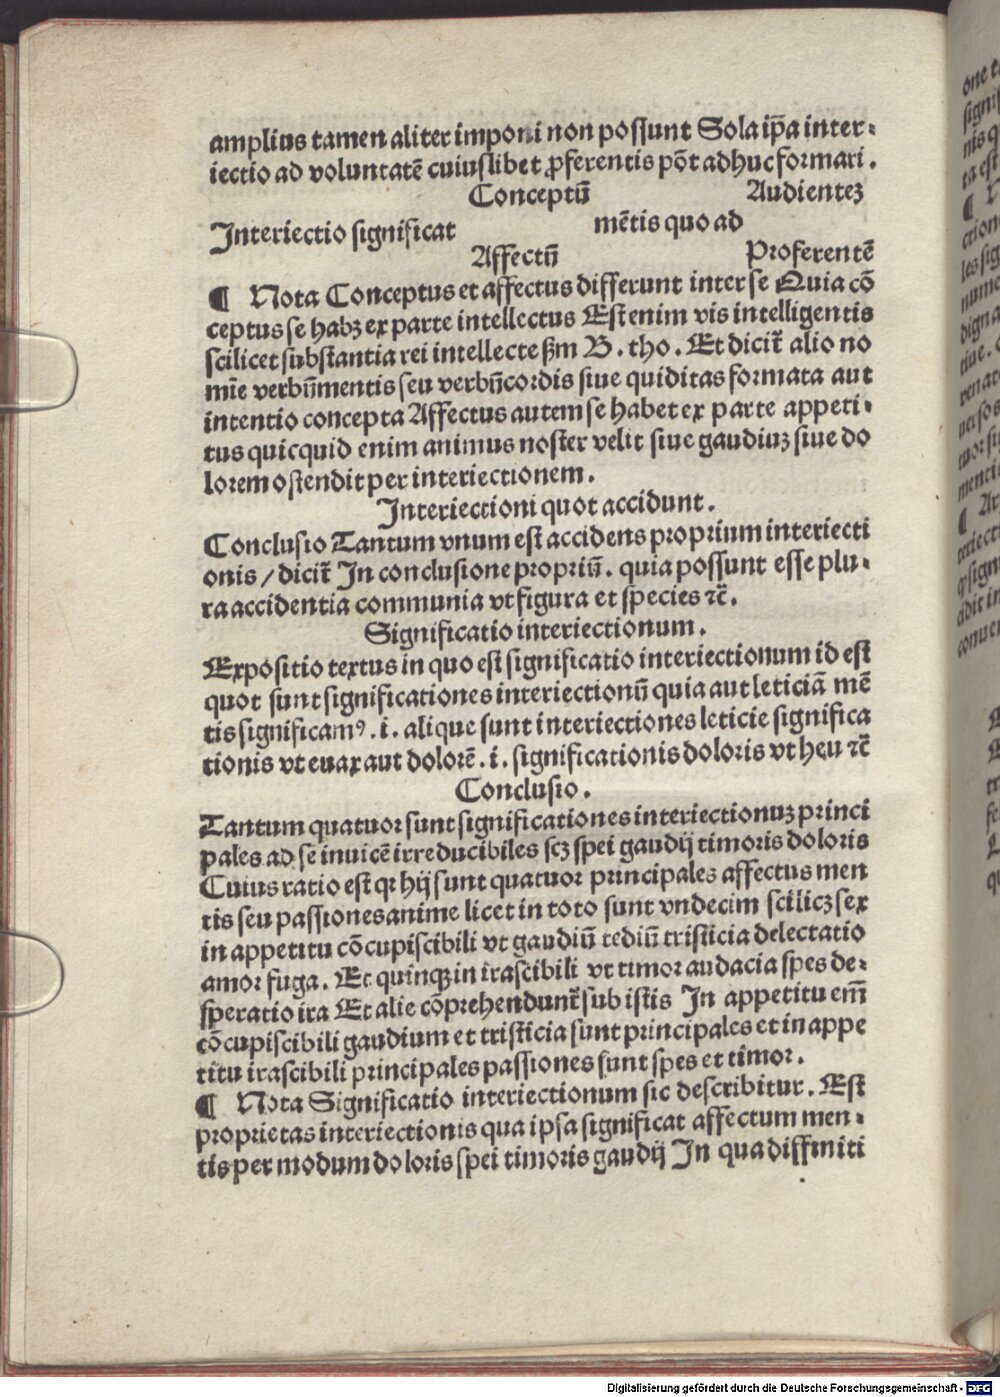 amplius tamen aliter imponi non possunt Sola ip̃a inter-
iectio ad voluntatē cuiuslibet ꝓferentis põt adhuc formari.
Conceptū Audientez
Interiectio significat mētis quo ad
Affectū Proferentē
¶ Nota Conceptus et affectus differunt inter se Quia cō
ceptus se habꝫ ex parte intellectus Est enim vis intelligentis
scilicet substantia rei intellecte ẜm B. tho. Et dicit̃ alio no
mīe verbūmentis seu verbūcordis siue quiditas formata aut
intentio concepta Affectus autem se habet ex parte appeti-
tus quicquid enim animus noster velit siue gaudiuꝫ siue do
lorem ostendit per interiectionem.
Interiectioni quot accidunt.
Conclusio Tantum vnum est accidens proprium interiecti
onis / dicit̃ In conclusione propriū. quia possunt esse plu-
ra accidentia communia vt figura et species ⁊c̃.
Significatio interiectionum.
Expositio textus in quo est significatio interiectionum id est
quot sunt significationes interiectionū quia aut leticiā mē
tis significamꝰ. i. alique sunt interiectiones leticie significa
tionis vt euax aut dolorē. i. significationis doloris vt heu ⁊c̃
Conclusio.
Tantum quatuor sunt significationes interiectionuꝫ princi
pales ad se inuicē irreducibiles scꝫ spei gaudij timoris doloris
Cuius ratio est qꝛ hij sunt quatuor principales affectus men
tis seu passiones anime licet in toto sunt vndecim scilicꝫ sex
in appetitu cōcupiscibili vt gaudiū tediū tristicia delectatio
amor fuga. Et quinqꝫ in irascibili vt timor audacia spes de-
speratio ira Et alie cōprehendunt̃ sub istis In appetitu em̄
cōcupiscibili gaudium et tristicia sunt principales et in appe
titu irascibili principales passiones sunt spes et timor.
¶ Nota Significatio interiectionum sic describitur. Est
proprietas interiectionis qua ipsa significat affectum men-
tis per modum doloris spei timoris gaudij In qua diffiniti
Digitalisierung gefördert durch die Deutsche Forschungsgemeinschaft - DFG